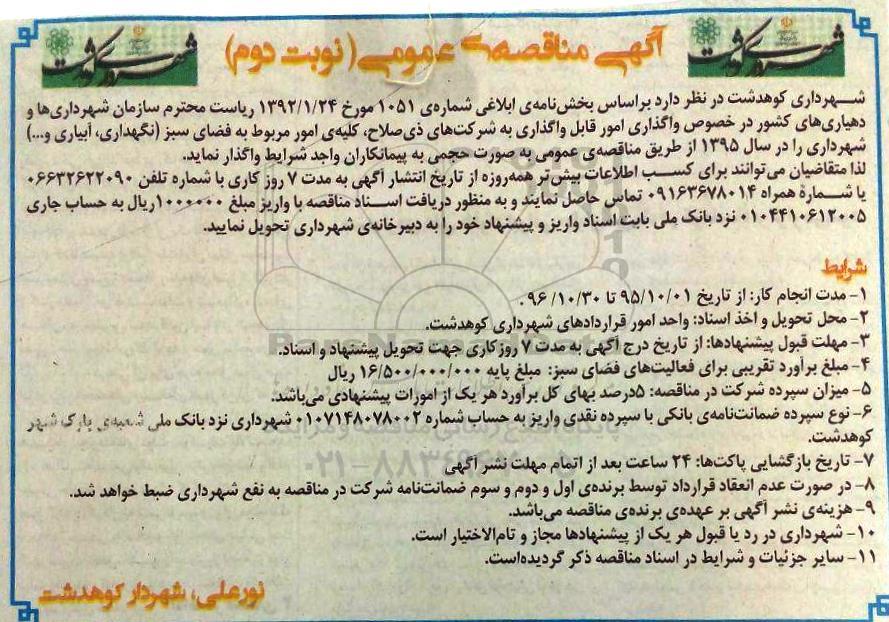 شهرداری کوهدشت
آگهی مناقصه‌ی عمومی (نوبت دوم)
شهرداری کوهدشت
شهرداری کوهدشت در نظر دارد براساس بخش‌نامه‌ی ابلاغی شماره‌ی ۱۰۵۱ مورخ ۱۳۹۲/۱/۲۴ ریاست محترم سازمان شهرداری‌ها و
دهیاری‌های کشور در خصوص واگذاری امور قابل واگذاری به شرکت‌های ذی‌صلاح، کلیه‌ی امور مربوط به فضای سبز (نگهداری، آبیاری و...)
شهرداری را در سال ۱۳۹۵ از طریق مناقصه‌ی عمومی به صورت حجمی به پیمانکاران واجد شرایط واگذار نماید.
لذا متقاضیان می‌توانند برای کسب اطلاعات بیش‌تر همه‌روزه از تاریخ انتشار آگهی به مدت ۷ روز کاری با شماره تلفن ۰۶۶۳۲۶۲۲۰۹۰
یا شمارهٔ همراه ۰۹۱۶۳۶۷۸۰۱۴ تماس حاصل نمایند و به منظور دریافت اسناد مناقصه با واریز مبلغ ۱۰۰۰۰۰۰ریال به حساب جاری
۰۱۰۴۴۱۰۶۱۲۰۰۵ نزد بانک ملی بابت اسناد واریز و پیشنهاد خود را به دبیرخانه‌ی شهرداری تحویل نمایید.
شرایط
۱- مدت انجام کار: از تاریخ ۹۵/۱۰/۰۱ تا ۹۶/۱۰/۳۰.
۲- محل تحویل و اخذ اسناد: واحد امور قراردادهای شهرداری کوهدشت.
۳- مهلت قبول پیشنهادها: از تاریخ درج آگهی به مدت ۷ روزکاری جهت تحویل پیشنهاد و اسناد.
۴- مبلغ برآورد تقریبی برای فعالیت‌های فضای سبز: مبلغ پایه ۱۶/۵۰۰/۰۰۰/۰۰۰ ریال
۵- میزان سپرده شرکت در مناقصه: ۵درصد بهای کل برآورد هر یک از امورات پیشنهادی می‌باشد.
۶- نوع سپرده ضمانت‌نامه‌ی بانکی با سپرده نقدی واریز به حساب شماره ۰۱۰۷۱۴۸۰۷۸۰۰۲ شهرداری نزد بانک ملی شعبه‌ی پارک شهر
کوهدشت.
۷- تاریخ بازگشایی پاکت‌ها: ۲۴ ساعت بعد از اتمام مهلت نشر آگهی
۸- در صورت عدم انعقاد قرارداد توسط برنده‌ی اول و دوم و سوم ضمانت‌نامه شرکت در مناقصه به نفع شهرداری ضبط خواهد شد.
۹- هزینه‌ی نشر آگهی بر عهده‌ی برنده‌ی مناقصه می‌باشد.
۱۰- شهرداری در رد یا قبول هر یک از پیشنهادها مجاز و تام‌الاختیار است.
۱۱- سایر جزئیات و شرایط در اسناد مناقصه ذکر گردیده‌است.
نورعلی، شهردار کوهدشت